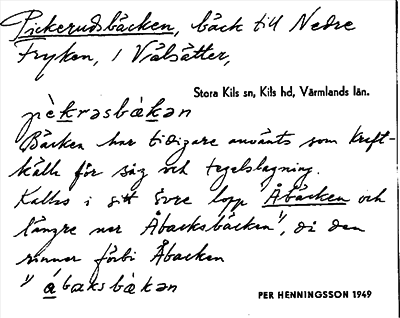 Pickerudsbäcken, bäck till Nedre
Fryken, i Vålsätter,
Stora Kils sn, Kils hd, Värmlands län.
pèkrəsbàkən
Bäcken har tidigare använts som kraft-
källa för såg och tegelslagning.
Kallas i sitt övre lopp Åbäcken och
längre ner Åbacksbäcken¹⁾, då den
rinner förbi Åbacken
¹⁾ åbaksbàkən
PER HENNINGSSON 1949